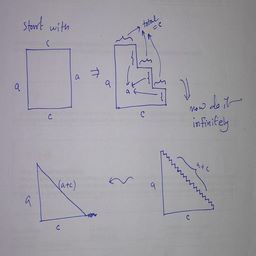 start with
c
a
a
c
⇒
total
= c
a
a
c
now do it
infinitely
a
(a+c)
c
a
a+c
c